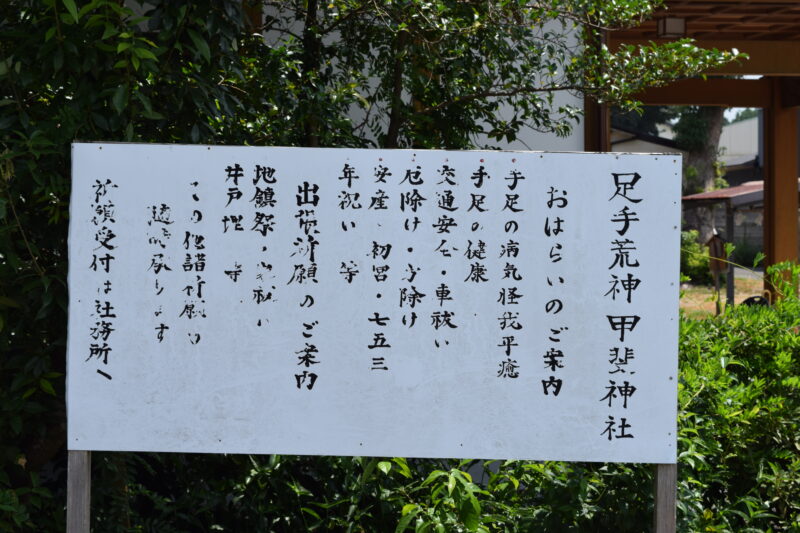 足手荒神 甲斐神社
おはらいのご案内
手足の病気怪我平癒
手足の健康
交通安全・車祓い
厄除け・方除け
安産・初宮・七五三
年祝い 等
出張祈願のご案内
地鎮祭・家祓い
井戸埋 等
この他諸祈願も
随時承ります
祈願受付は社務所へ